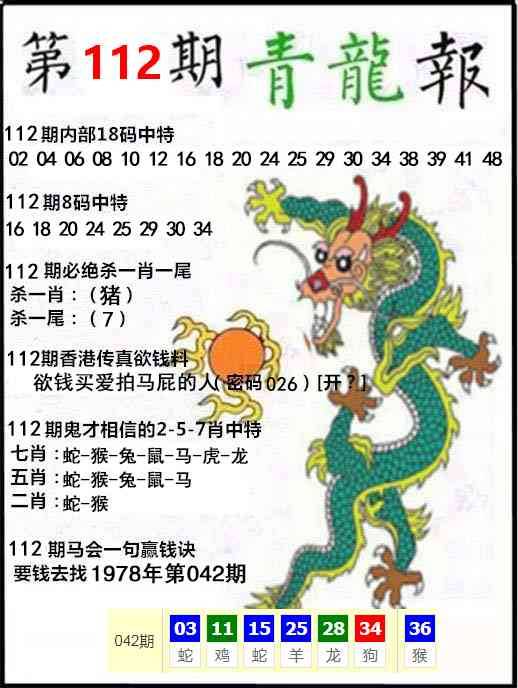 第112期 青龍報
112期内部18码中特
02 04 06 08 10 12 16 18 20 24 25 29 30 34 38 39 41 48
112期8码中特
16 18 20 24 25 29 30 34
112 期必绝杀一肖一尾
杀一肖：（猪）
杀一尾：（7）
112期香港传真欲钱料
欲钱买爱拍马屁的人(密码026)[开？]
112期鬼才相信的2-5-7肖中特
七肖：蛇-猴-兔-鼠-马-虎-龙
五肖：蛇-猴-兔-鼠-马
二肖：蛇-猴
112 期马会一句赢钱诀
要钱去找1978年第042期
042期 03 11 15 25 28 34 36
蛇 鸡 蛇 羊 龙 狗 猴